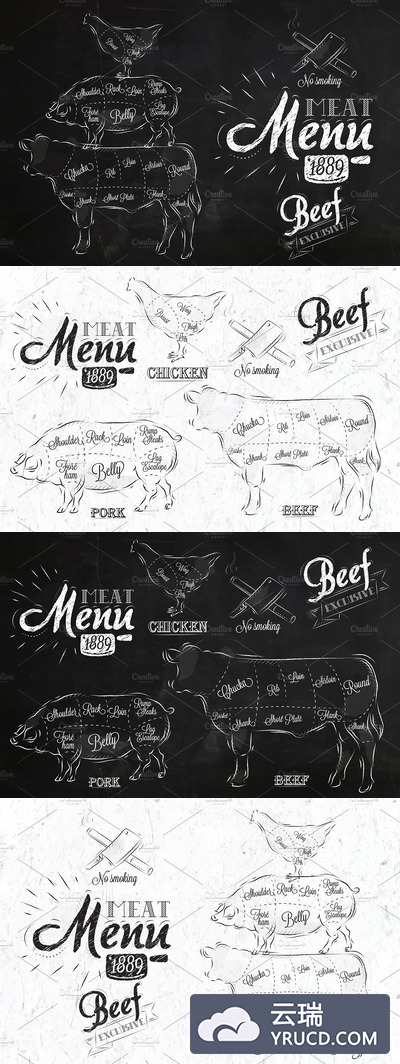 Breast Wing
Thigh
Leg
No smoking
Shoulder Rack Loin Rump Steaks
Fore ham Belly Leg Escalope
MEAT
Menu
1889
Chucks Rib Loin Sirloin Round
Shank Short Plate Flank Shank
Beef
EXCUISIVE
MEAT
Menu
1889
Wing
Thigh
Leg
CHICKEN
No smoking
Beef
EXCUISIVE
Shoulder Rack Loin Rump Steaks
Fore ham Belly Leg Escalope
PORK
Chucks Rib Loin Sirloin Round
Shank Short Plate Flank Shank
BEEF
MEAT
Menu
1889
Wing
Thigh
Leg
CHICKEN
No smoking
Beef
EXCUISIVE
Shoulder Rack Loin Rump Steaks
Fore ham Belly Leg Escalope
PORK
Chucks Rib Loin Sirloin Round
Shank Short Plate Flank Shank
BEEF
No smoking
MEAT
Menu
1889
Beef
EXCUISIVE
Wing
Thigh
Leg
Shoulder Rack Loin Rump Steaks
Fore ham Belly Leg Escalope
Chucks Rib Loin Sirloin Round
云瑞
YRUCD.COM